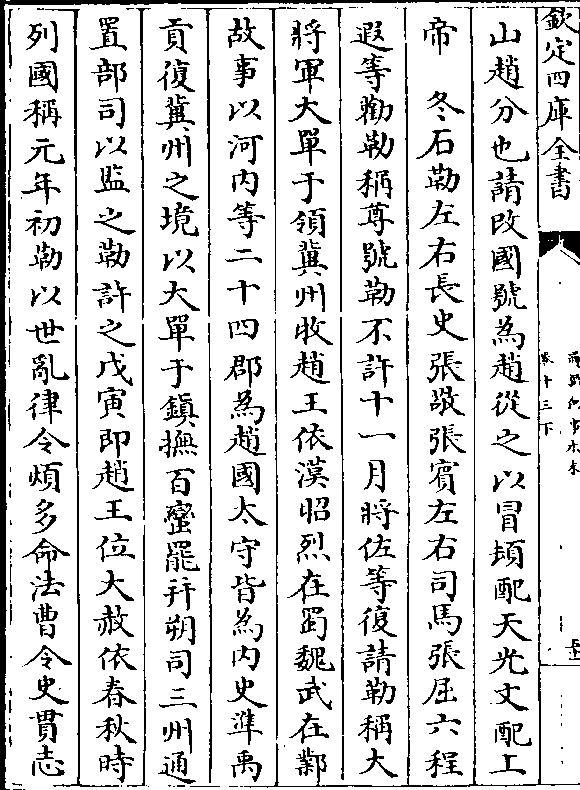 欽定四庫全書
卷十三下
山趙分也請改國號為趙從之以冒頓配天光文配上
帝　冬石勒左右長史張敬張賓左右司馬張屈六程
遐等勸勒稱尊號勒不許十一月將佐等復請勒稱大
將軍大單于領冀州牧趙王依漢昭烈在蜀魏武在鄴
故事以河内等二十四郡為趙國太守皆為内史準禹
貢復冀州之境以大單于鎮撫百蠻罷并朔司三州通
置部司以監之勒許之戊寅即趙王位大赦依春秋時
列國稱元年初勒以世亂律令煩多命法曹令史貫志